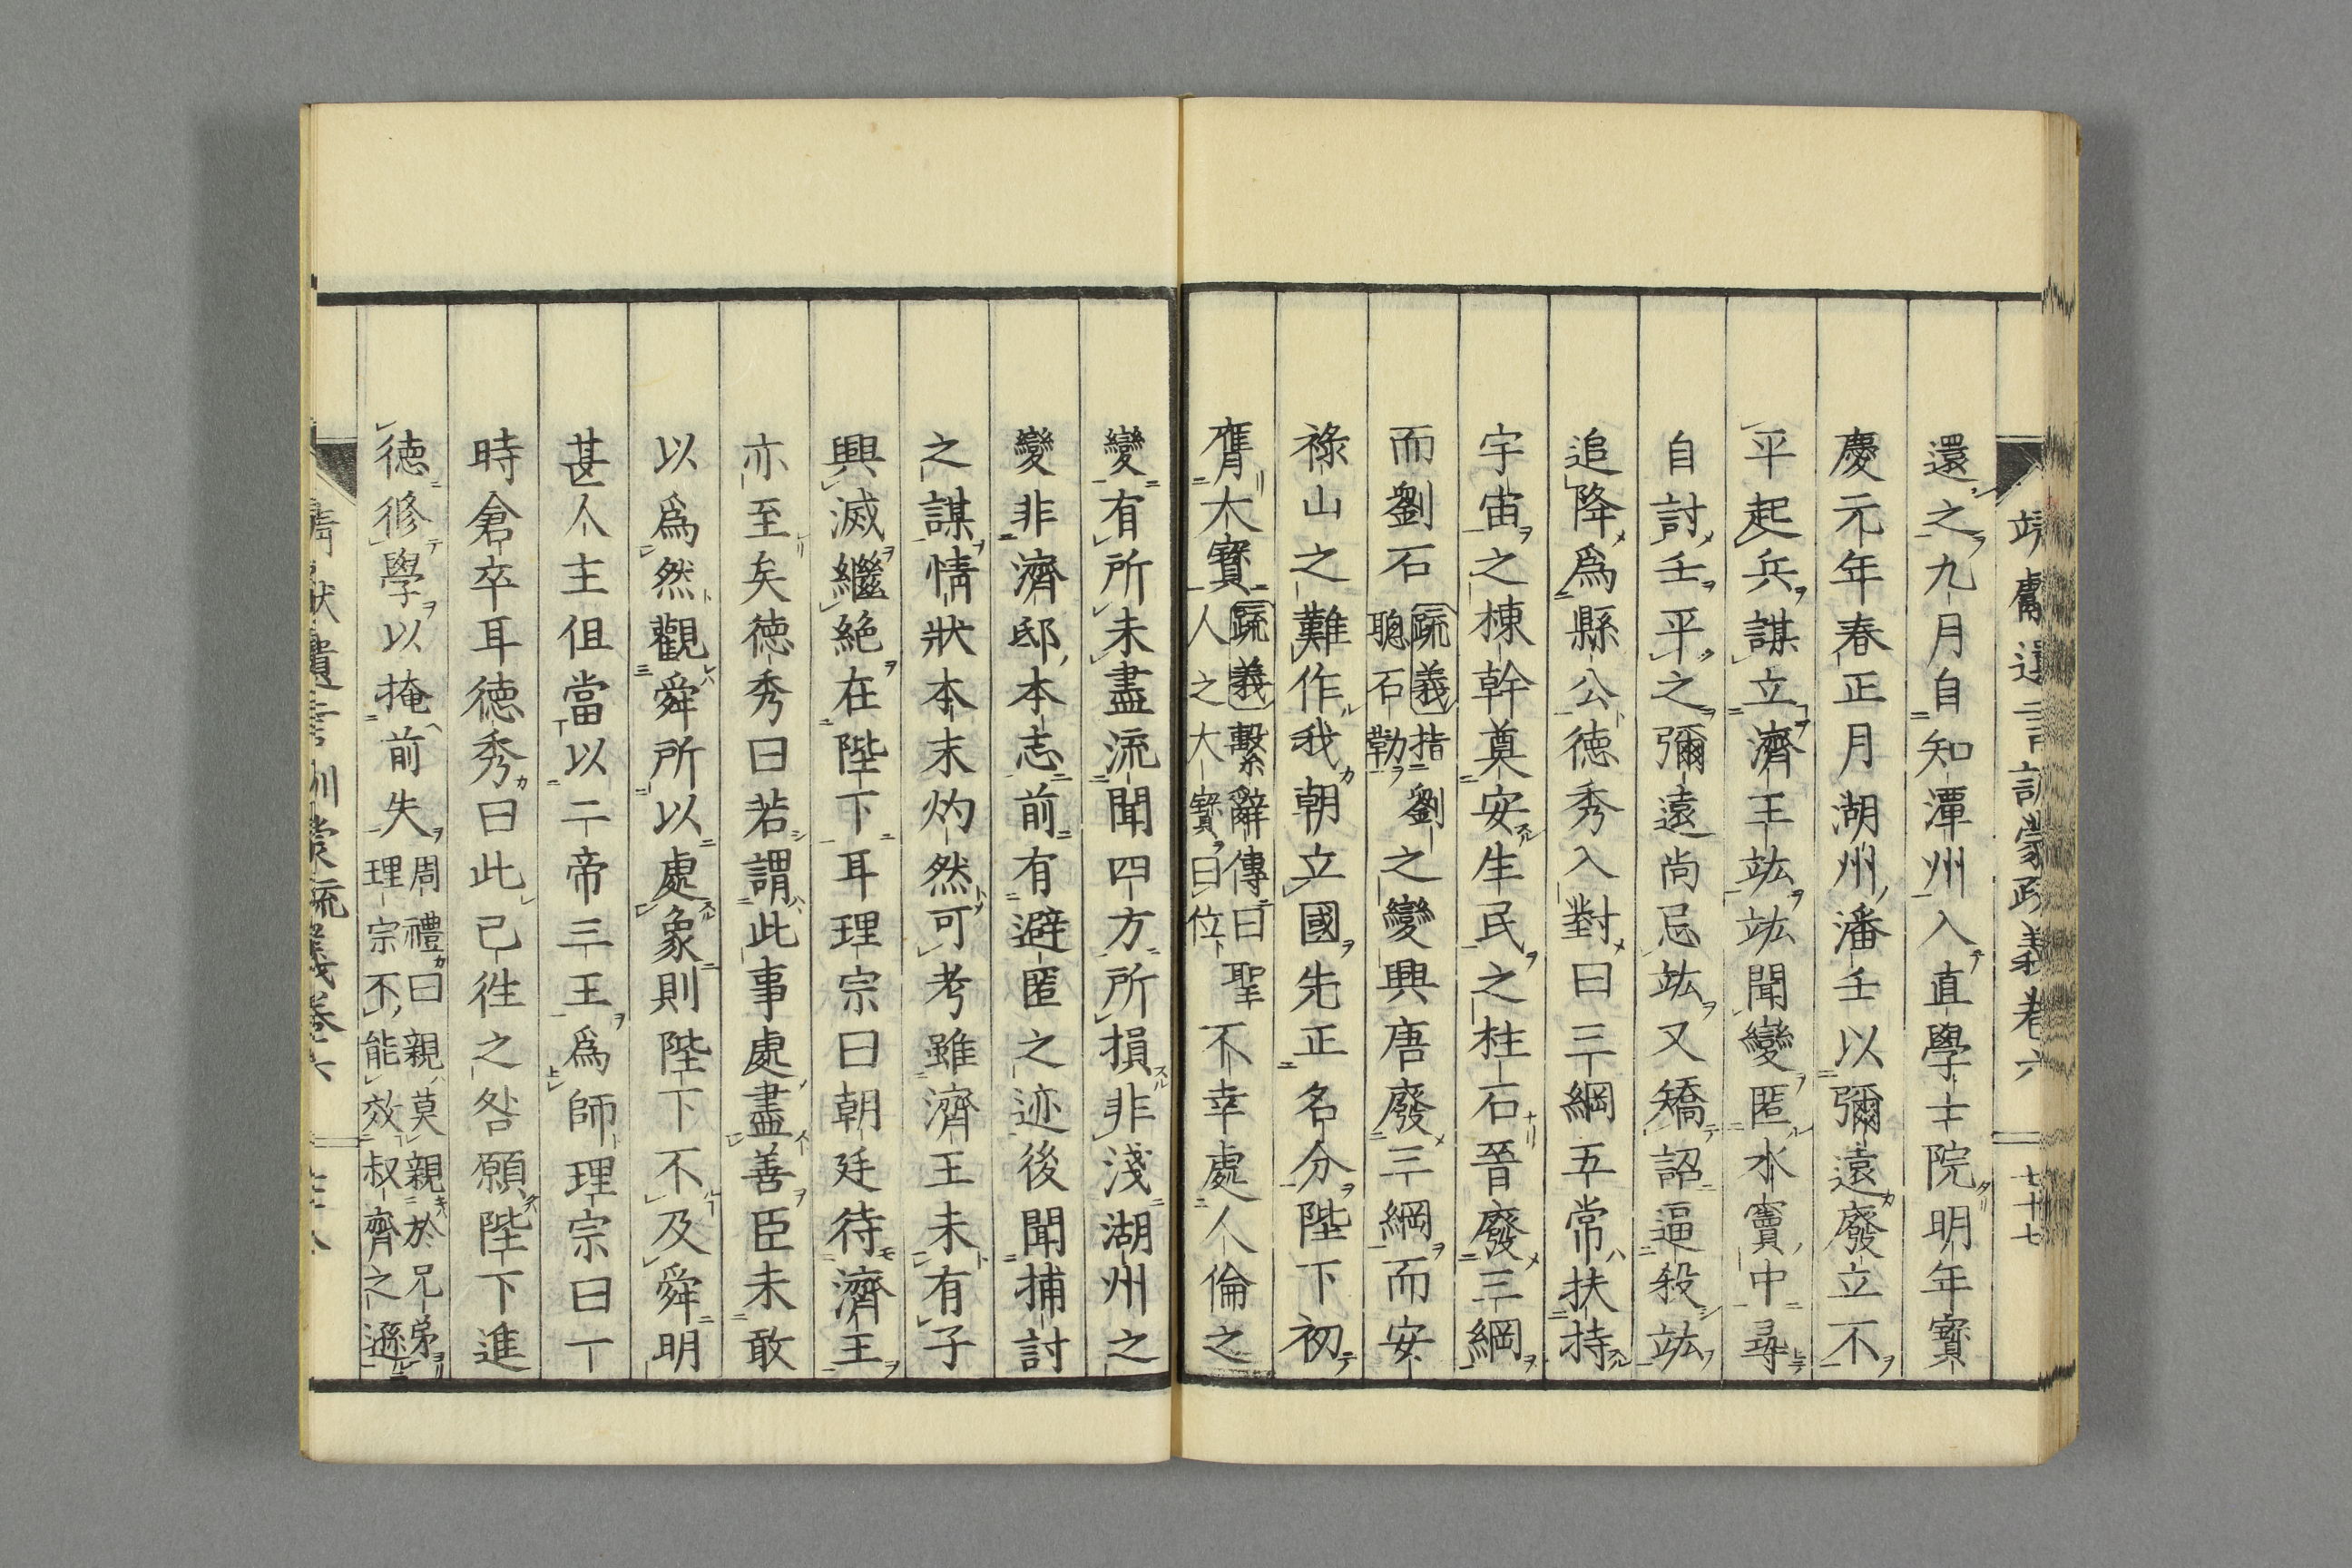 靖獻遺言訓蒙疏義卷六 七十七
還之九月自知潭州入直學士院明年寳
慶元年春正月湖州潘壬以彌遠廢立不
平起兵謀立濟王竑竑聞變匿水竇中尋
自討壬平之彌遠尚忌竑又矯詔逼殺竑
追降爲縣公徳秀入對曰三綱五常扶持
宇宙之棟幹奠安生民之柱石晉廢三綱
而劉石疏義指劉聰石勒之變興唐廢三綱而安
祿山之難作我朝立國先正名分陛下初
膺大寳疏義繫辭傳曰聖人之大寳曰位不幸處人倫之
變有所未盡流聞四方所損非淺湖州之
變非濟邸本志前有避匿之迹後聞捕討
之謀情狀本末灼然可考雖濟王未有子
興滅繼絶在陛下耳理宗曰朝廷待濟王
亦至矣徳秀曰若謂此事處盡善臣未敢
以爲然觀舜所以處象則陛下不及舜明
甚人主但當以二帝三王爲師理宗曰一
時倉卒耳徳秀曰此已徃之咎願陛下進
徳修學以掩前失周禮曰親莫親於兄弟理宗不能效叔齊之遜
靖獻遺言訓蒙疏義卷六